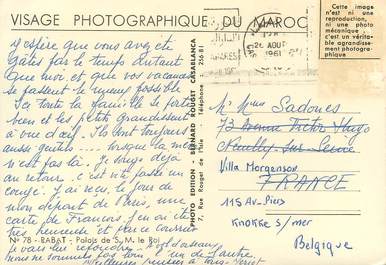 VISAGE PHOTOGRAPHIQUE DU MAROC
Cette image
n'est ni une
reproduction,
ni une photo
mécanique :
c'est un vérita-
ble agrandisse-
ment photogra-
phique
1961
J'espère que vous avez été
gâtés par le temps autant
que moi, et que vos vacances
se passent le mieux possible
Ici toute la famille se porte
bien et les petits grandissent
à vue d'œil. Ils sont toujours
aussi gentils... lorsque la mer
n'est pas là. Je songe déjà
au retour. c'est vite passé un
congé. J'ai reçu, le jour de
mon départ de Paris, une
carte de Francois. J'en ai été
très heureuse et par ce courrier
Nº 78 - RABAT - Palais de S. M. le Roi
nous ne sommes pas loin l'un de l'autre
PHOTO EDITION - BERNARD ROUGET CASABLANCA
7, Rue Rouget de l'Isle - Téléphone : 256-81
M. Mme Sadones
73 Avenue Victor Hugo
Neuilly sur Seine
Villa Morgenson
FRANCE
115 Av-Piers
KNOKKE s/mer
Belgique